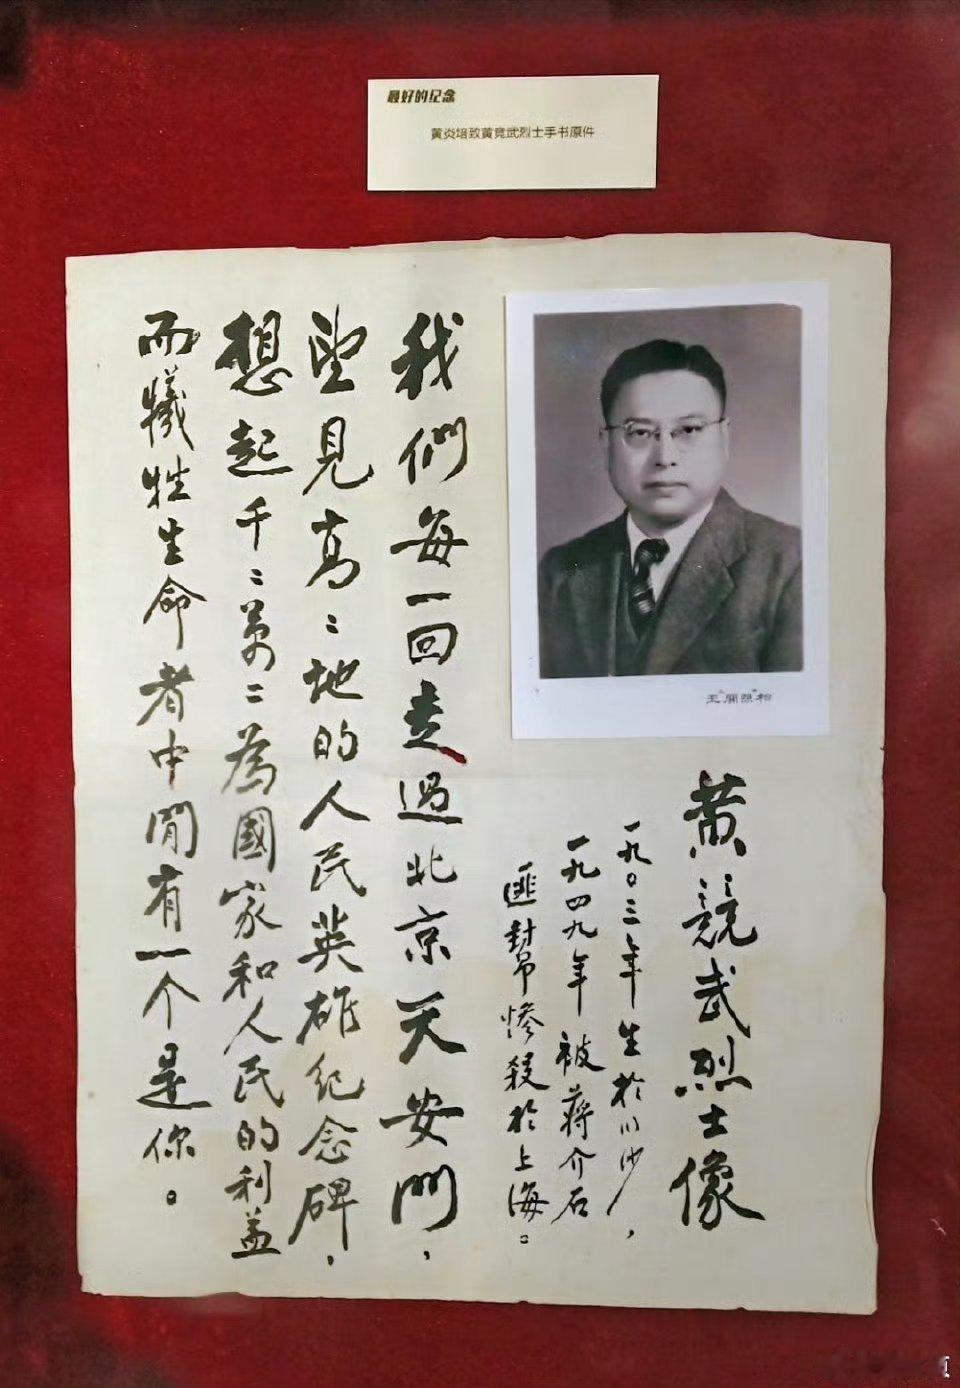 最好的纪念
黄炎培致黄竞武烈士手书原件
王开照相
黄競武烈士像
一九〇三年生於川沙，
一九四九年被蒋介石
匪幫惨殺於上海。
我們每一回走過北京天安門，
望見高〻地的人民英雄纪念碑，
想起千〻萬〻為國家和人民的利益
而犧牲生命者中間有一个是你。